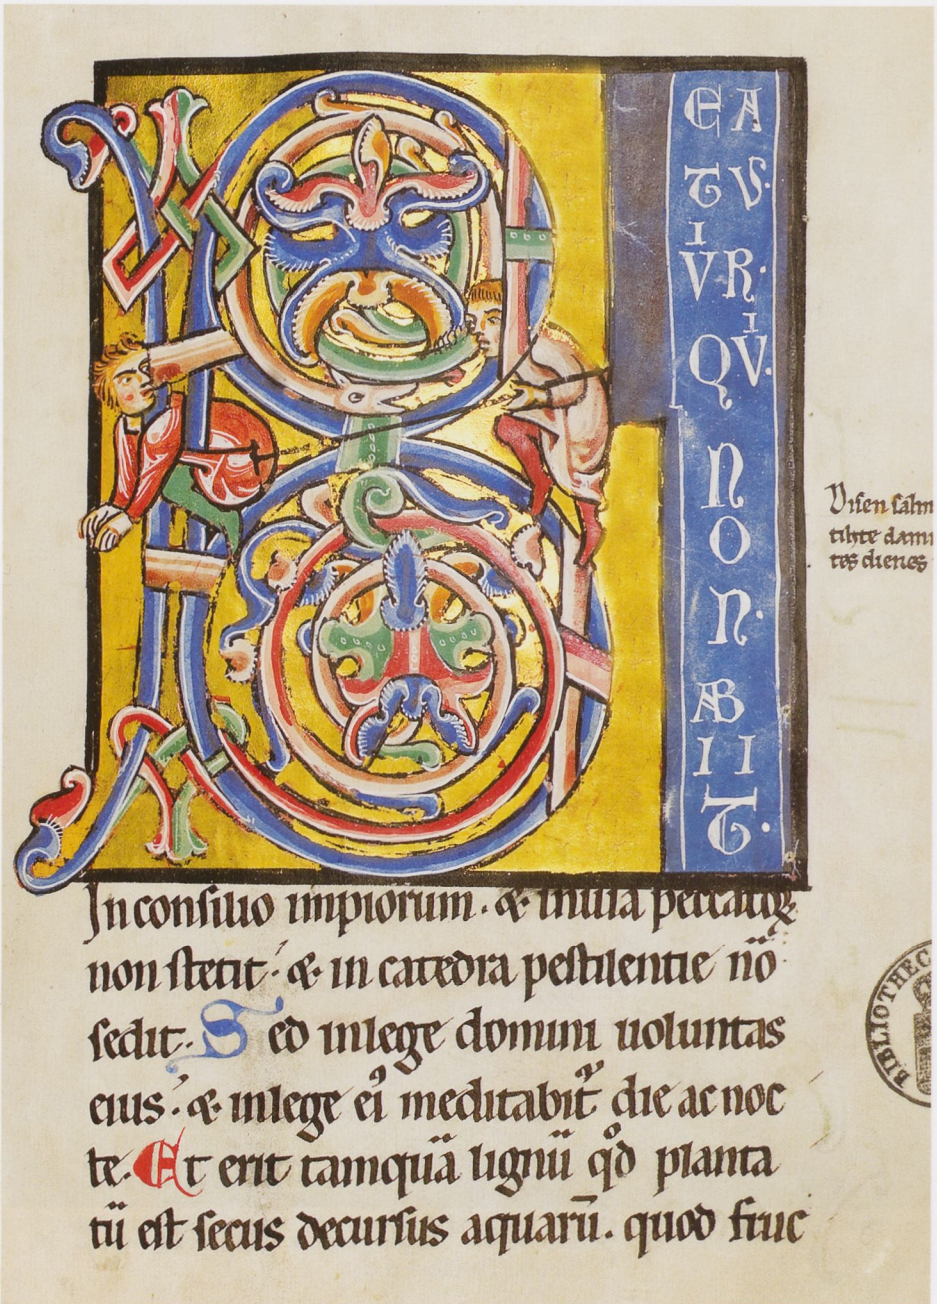 B
EA
TVS·
VIR·
QVI·
N
O
N·
AB
II
T·
Disen salm
tihte dami
tes dienes
In consilio impiorum· & in uia peccatoꝝ
non stetit· & in catedra pestilentie nō
sedit· Sed in lege domini uoluntas
eius· & in lege eiꝰ meditabit᷑ die ac noc
te· Et erit tamquā lignū qd̊ planta
tū est secus decursus aquarū· quod fruc
BIBLIOTHEC